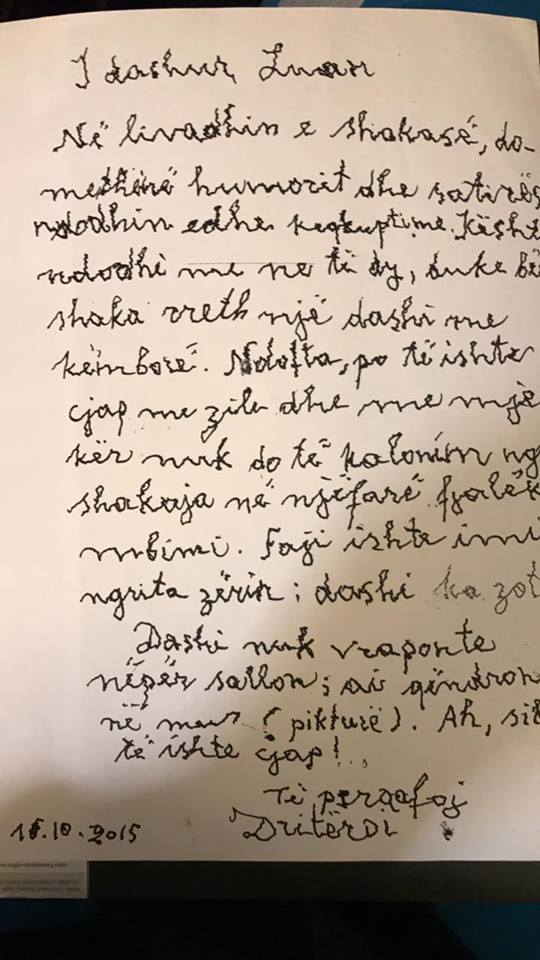 I dashur Luan
Në livadhin e shakasë, do-
methënë humorit dhe satirës
ndodhin edhe keqkuptime. Kësht
ndodhi me ne të dy, duke bë
shaka rreth një dashi me
këmborë. Ndofta, po të ishte
cjap me zile dhe me mjë
kër nuk do të kalonim ng
shakaja në njëfarë fjalëk
mbimi. Faji ishte imi
ngrita zërin: dashi ka zot
Dashi nuk vraponte
nëpër sallon; ai qëndron
në mur (pikturë). Ah, sik
të ishte cjap!..
Të përqafoj
Dritëroi
15.10.2015